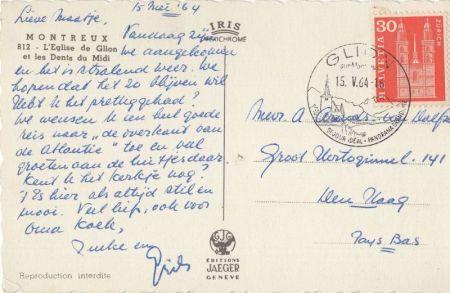 15 Mei '64
Lieve Maatje,
IRIS
MEXICHROME
MONTREUX
812 - L'Eglise de Glion
et les Dents du Midi
Vandaag zijn
we aangekomen
en het is stralend weer. We
hopen dat het zo blijven wil
Hebt U het prettig gehad?
We wensen U een heel goede
reis naar "de overkant van
de Atlantic" toe en veel
groeten aan de
Kent U het kerkje nog?
't Is hier als altijd stil en
mooi. Veel liefs, ook voor
Oma
en
Reproduction interdite
ÉDITIONS
JAEGER
GENÈVE
GLION
15. V. 64
SEJOUR IDÉAL - PANORAMA
30
HELVETIA
ZÜRICH
Mevr. A
Groot Hertoginnel. 141
Den Haag
Pays Bas